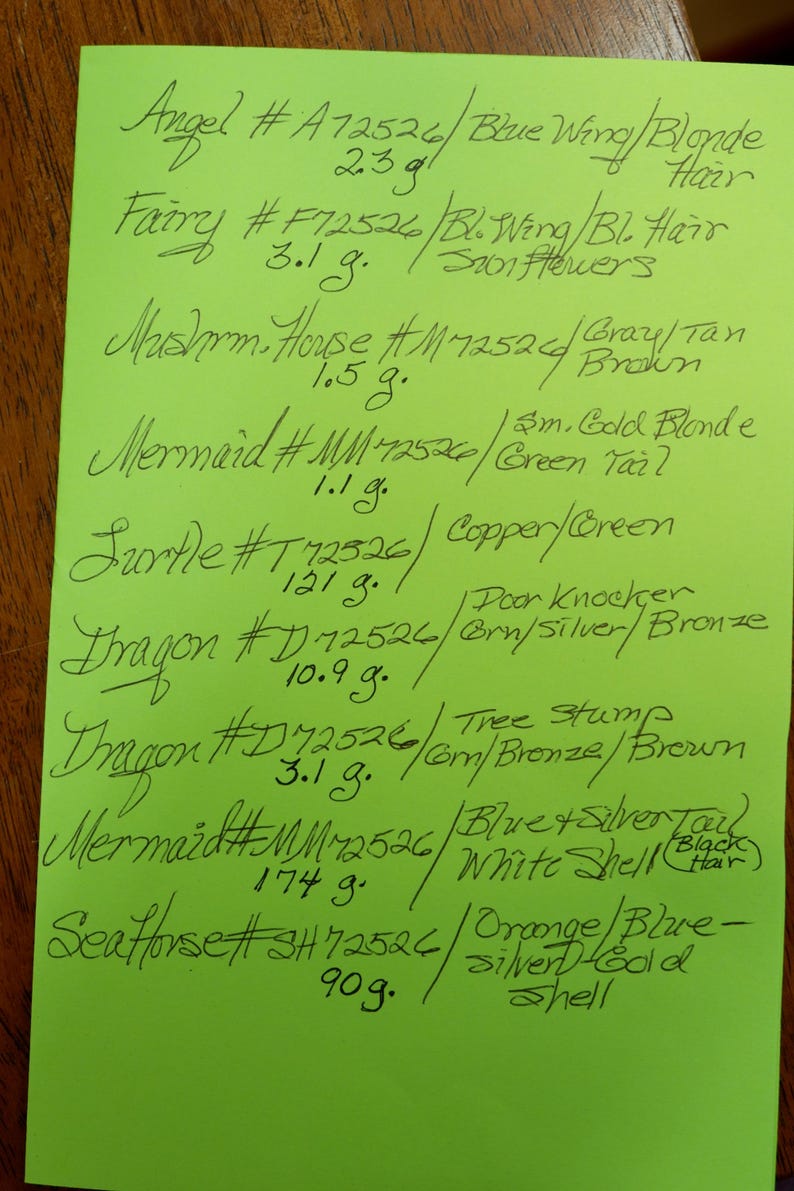 Angel # A72526/ Blue Wing/Blonde
2.3 g Hair
Fairy # F72526/Bl. Wing/Bl. Hair
3.1 g. Sunflowers
Mushrm. House #M72526/ Gray/Tan
1.5 g. Brown
Mermaid #MM72526/ Sm. Gold Blonde
1.1 g. Green Tail
Turtle #T72526/ Copper/Green
121 g.
Dragon #D72526/ Door Knocker
10.9 g. Grn/Silver/Bronze
Dragon #D72526/ Tree Stump
3.1 g. Grn/Bronze/Brown
Mermaid#MM72526/ Blue+Silver Tail
174 g. White Shell (Black Hair)
SeaHorse#SH72526/ Orange/Blue-
Silver-Gold
90g. Shell